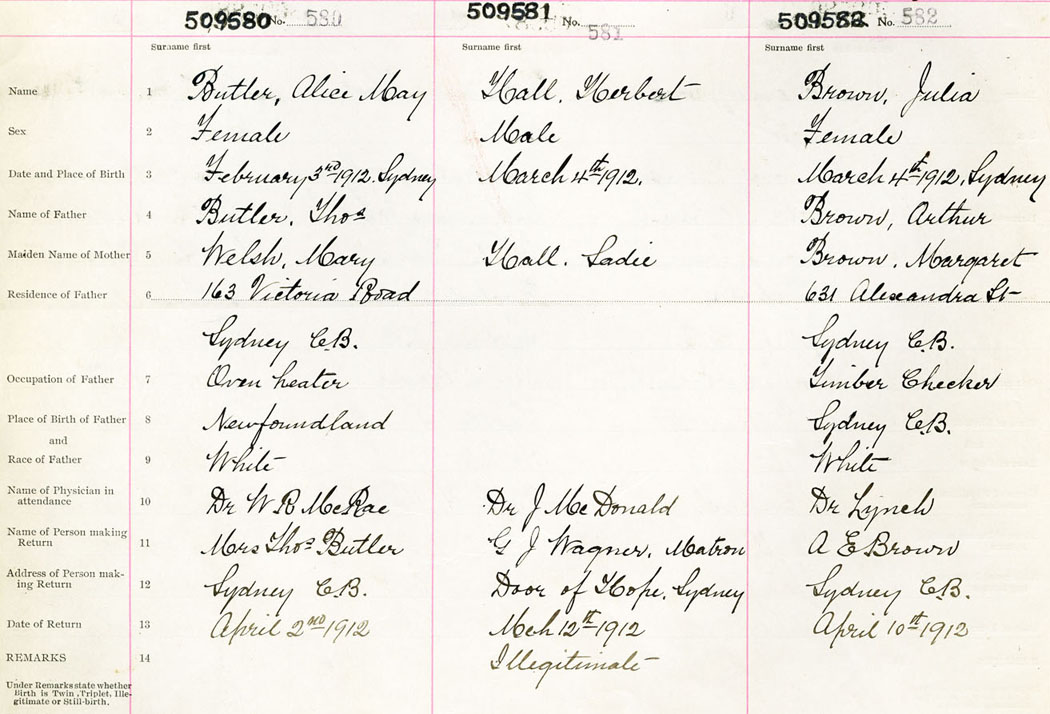 509580 No. 580 509581 No. 581 509582 No. 582
Surname first Surname first Surname first
Name 1 Butler, Alice May Hall, Herbert Brown, Julia
Sex 2 Female Male Female
Date and Place of Birth 3 February 3rd 1912. Sydney March 4th 1912. March 4th 1912, Sydney
Name of Father 4 Butler, Thos Brown, Arthur
Maiden Name of Mother 5 Welsh, Mary Hall. Sadie Brown, Margaret
Residence of Father 6 163 Victoria Road 631 Alexandra St
Sydney C.B. Sydney C.B.
Occupation of Father 7 Oven heater Timber Checker
Place of Birth of Father 8 Newfoundland Sydney C.B.
and
Race of Father 9 White White
Name of Physician in
attendance 10 Dr W R McRae Dr J McDonald Dr Lynch
Name of Person making
Return 11 Mrs Thos Butler G J Wagner, Matron A E Brown
Address of Person mak-
ing Return 12 Sydney C.B. Door of Hope, Sydney Sydney C.B.
Date of Return 13 April 2nd 1912 Mch 12th 1912 April 10th 1912
REMARKS 14 Illegitimate
Under Remarks state whether
Birth is Twin, Triplet, Ille-
gitimate or Still-birth.